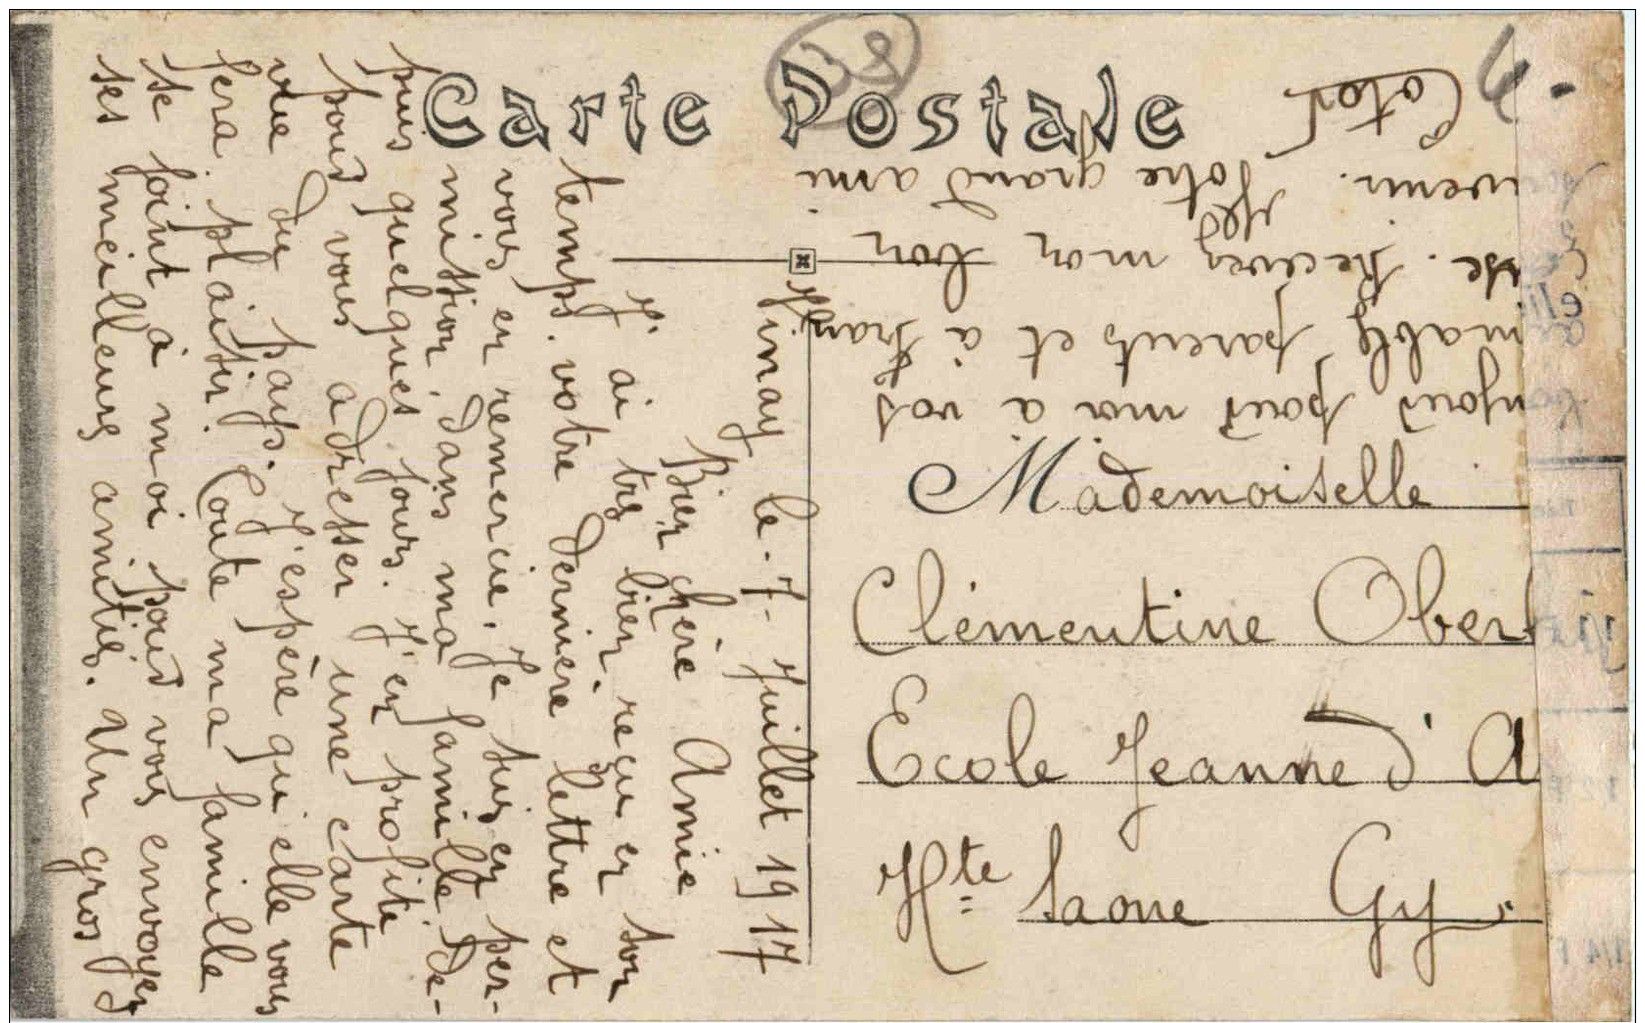 Carte Postale
38
le 7 Juillet 1917
Bien chère Amie
J'ai très bien reçu en son
temps votre dernière lettre et
vous en remercie. Je suis en per-
mission, dans ma famille de-
puis quelques jours. J'en profite
pour vous adresser une carte
vue du pays. J'espère qu'elle vous
fera plaisir. Toute ma famille
se joint à moi pour vous envoyer
ses meilleurs amitiés. Un gros
pour moi à vos
parents et à
Recevez mon bon
Votre grand ami
Mademoiselle
Clémentine Ober
Ecole Jeanne d'A
Hte Saone Gy.